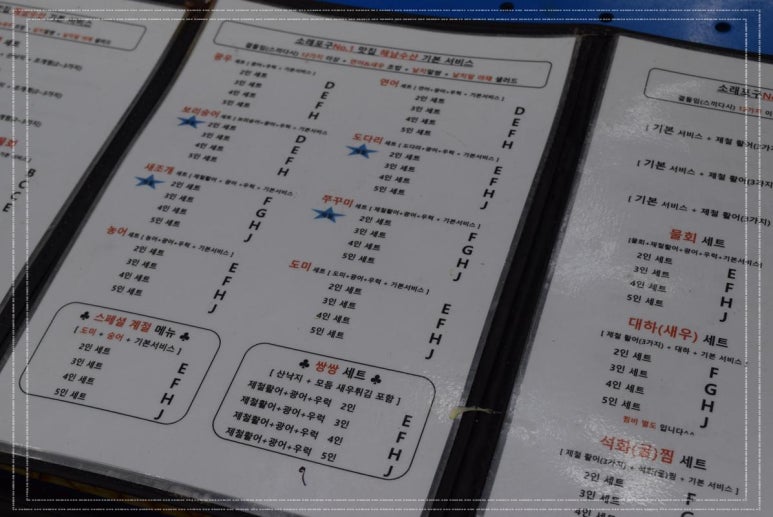 소래포구No.1 맛집 해남수산 기본 서비스
곁들임(스끼다시) 12가지 이상 + 연어&새우 초밥 + 날치알쌈 + 날치알 야채 샐러드
광우 세트 [ 광어+우럭 + 기본서비스 ]
2인 세트 D
3인 세트 E
4인 세트 F
5인 세트 H
보리숭어 세트 [ 보리숭어+광어+우럭 + 기본서비스 ]
2인 세트 D
3인 세트 E
4인 세트 F
5인 세트 H
새조개 세트 [ 제철활어+광어+우럭 + 기본서비스 ]
2인 세트 F
3인 세트 G
4인 세트 H
5인 세트 J
농어 세트 [ 농어+광어+우럭 + 기본서비스 ]
2인 세트 E
3인 세트 F
4인 세트 H
5인 세트 J
♣ 스페셜 계절 메뉴 ♣
[ 도미 + 숭어 + 기본서비스 ]
2인 세트 E
3인 세트 F
4인 세트 H
5인 세트 J
연어 세트 [ 연어+광어+우럭 + 기본서비스 ]
2인 세트 D
3인 세트 E
4인 세트 F
5인 세트 H
도다리 세트 [ 도다리+광어+우럭 + 기본서비스 ]
2인 세트 E
3인 세트 F
4인 세트 H
5인 세트 J
쭈꾸미 세트 [ 제철활어+광어+우럭 + 기본서비스 ]
2인 세트 F
3인 세트 G
4인 세트 H
5인 세트 J
도미 세트 [ 도미+광어+우럭 + 기본서비스 ]
2인 세트 E
3인 세트 F
4인 세트 H
5인 세트 J
♣ 쌍쌍 세트 ♣
[ 산낙지 + 모듬 새우튀김 포함 ]
제철활어+광어+우럭 2인 E
제철활어+광어+우럭 3인 F
제철활어+광어+우럭 4인 H
제철활어+광어+우럭 5인 J
소래포구No
곁들임(스끼다시) 12가지 이
[ 기본 서비스 + 제철 활어(2가지
[ 기본 서비스 + 제철 활어(3가지
[ 기본 서비스 + 제철 활어(3가지)
물회 세트
[물회+제철활어+광어+우럭+기본서비스]
2인 세트 E
3인 세트 F
4인 세트 H
5인 세트 J
대하(새우) 세트
[ 제철 활어(3가지) + 대하 + 기본 서비스
2인 세트 F
3인 세트 G
4인 세트 H
5인 세트 J
찜비 별도 입니다^^
석화(굴)찜 세트
[ 제철 활어(3가지) + 석화(굴)찜 + 기본 서비스 ]
2인 세트 F
3인 세트
4인 세